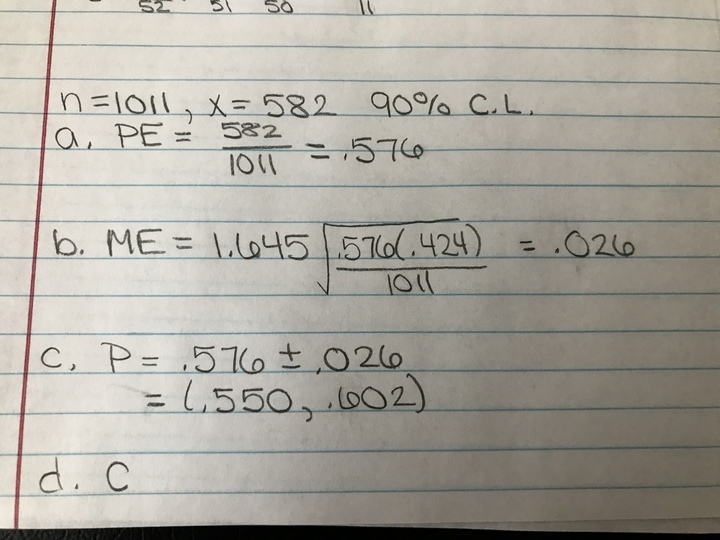 52 51 50 11
n=1011, x=582 90% C.L.
a. PE = 582/1011 = .576
b. ME = 1.645 √(.576(.424)/1011) = .026
c. P = .576 ± .026
= (.550, .602)
d. C